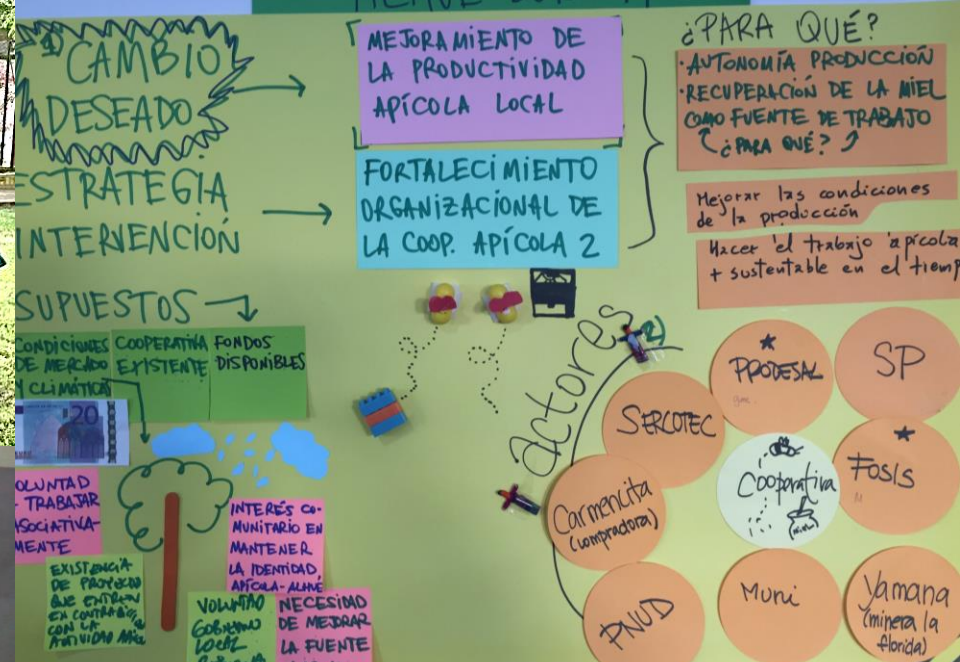 1) CAMBIO
DESEADO
ESTRATEGIA
INTERVENCIÓN
MEJORAMIENTO DE
LA PRODUCTIVIDAD
APÍCOLA LOCAL
FORTALECIMIENTO
ORGANIZACIONAL DE
LA COOP. APÍCOLA 2
¿PARA QUÉ?
· AUTONOMÍA PRODUCCIÓN
· RECUPERACIÓN DE LA MIEL
COMO FUENTE DE TRABAJO
¿PARA QUÉ?
Mejorar las condiciones
de la producción
Hacer el trabajo apícola
+ sustentable en el tiemp
SUPUESTOS
CONDICIONES
DE MERCADO
Y CLIMÁTICA
COOPERATIVA
EXISTENTE
FONDOS
DISPONIBLES
20
OLUNTAD
TRABAJAR
ASOCIATIVA-
MENTE
EXISTENCIA
DE PROYECTOS
QUE ENTREN
EN CONTRADIC
CON LA
ACTIVIDAD
INTERÉS CO-
MUNITARIO EN
MANTENER
LA IDENTIDAD
APÍCOLA-ALHUÉ
VOLUNTAD
GOBIERNO
LOCAL
NECESIDAD
DE MEJORAR
LA FUENTE
actores
2)
SERCOTEC
PRODESAL
SP
Carmencita
(compradora)
Cooperativa
miel
FOSIS
PNUD
Muni
Yamana
(minera la
florida)